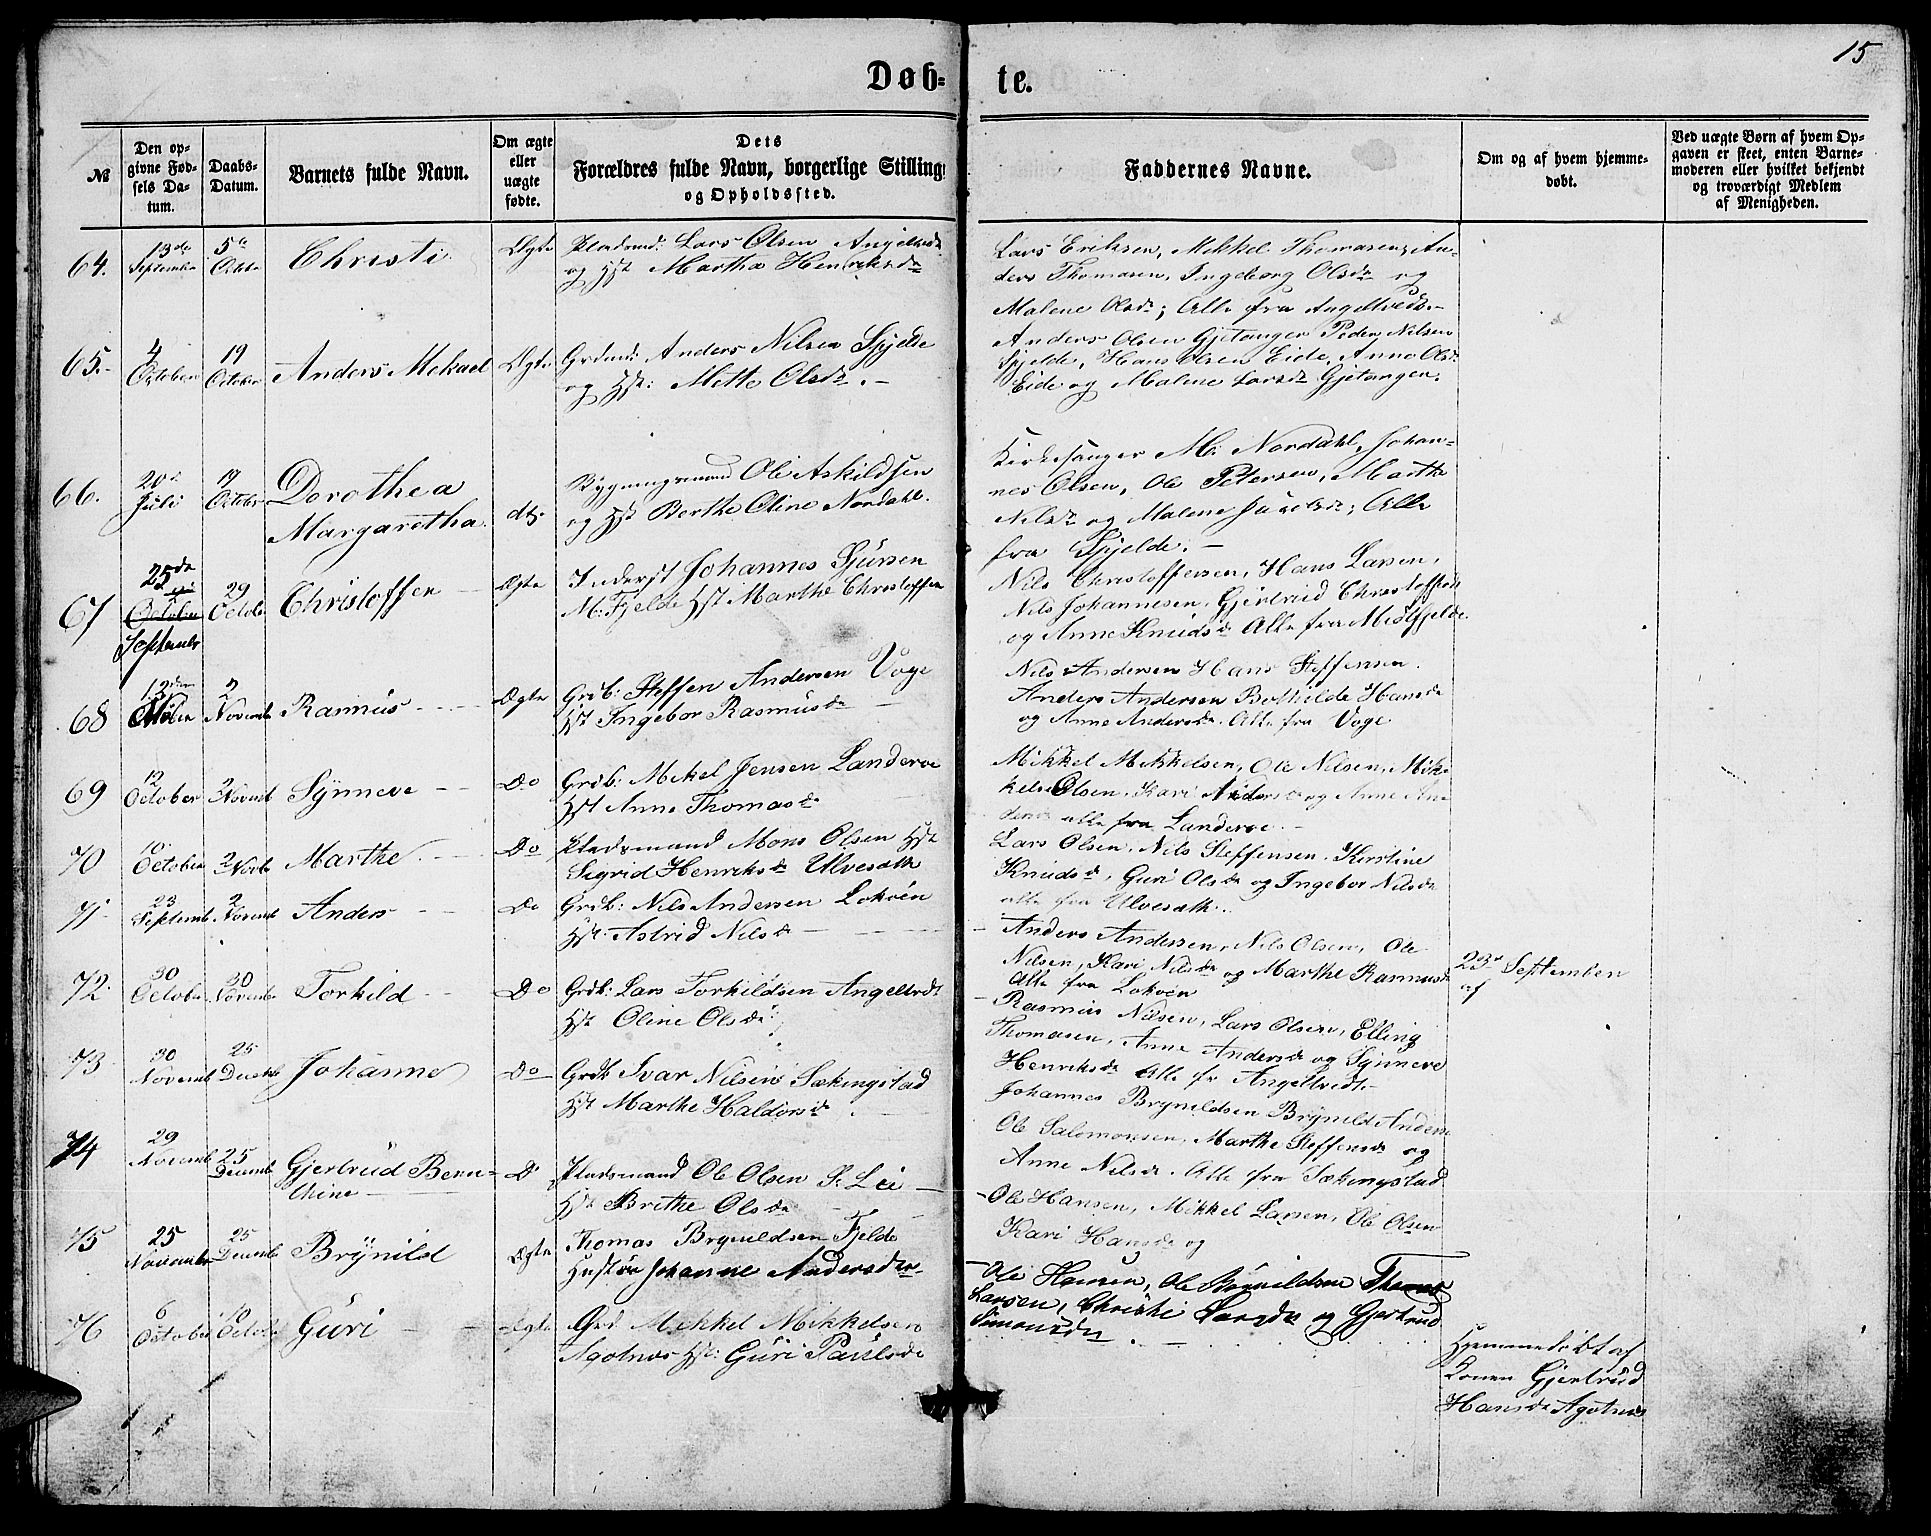 15
Døb-
te.
№
Den op-
givne Fød-
sels Da-
tum.
Daabs-
Datum.
Barnets fulde Navn.
Om ægte
eller
uægte
fødte.
Dets
Forældres fulde Navn, borgerlige Stilling
og Opholdssted.
Faddernes Navne.
Om og af hvem hjemme-
døbt.
Ved uægte Børn af hvem Op-
gaven er skeet, enten Barne-
moderen eller hvilket bekjendt
og troværdigt Medlem
af Menigheden.
64.
13de
September
5te
Octobr
Christi
Ægte
Pladsmd: Lars Olsen Angeltvedt
og Hst Martha Henriksdr
Lars Eriksen, Mikkel Thomasen, An-
ders Thomasen, Ingeborg Olsdr og
Malene Olsdr; Alle fra Angeltvedt.-
65.-
4
October
19
October
Anders Mekael
Ægte
Grdmd: Anders Nilsen Spjelde
og Hst: Mette Olsdr.-
Anders Olsen Gjetanger Peder Nilsen
Spjelde, Hans Olsen Eide, Anne Olsdr
Eide og Malene Larsdr Gjetangen.
66.
20de
Juli
19
October
Dorothea
Margaretha
dto
Bygningsmand Ole Askildsen
og Hst Berthe Oline Nordahl.
Kirkesanger M. Nordahl, Johan-
nes Olsen, Ole Petersen, Marthe
Nilsdr og Malene; Alle
fra Spjelde.-
67
25de
October
September
29
October
Christoffer
Ægte
Inderst Johannes Sjursen
M. Fjelde Hst Marthe Christoffer
Nils Christoffersen, Hans Larsen,
Nils Johannesen, Gjertrud Christoffsdr
og Anne Knudsdr Alle fra Midtfjelde
68
12
October
2
Novemb
Rasmus
Ægte
Grdb: Steffen Andersen Voge
Hst Ingebor Rasmusdr
Nils Andersen Hans Steffensen.
Anders Andersen Bothilde Hansdr
og Anne Andersdr. Alle fra Voge
69
12
October
2 Novemb
Synneve
Do
Grdb: Mekel Jensen Landerøe
Hst Anne Thomasdr
Mikkel Mikkelsen, Ole Nilsen, Mik-
kel Olsen, Kari Andersdr og Anne An
dersdr alle fra Landerøe.-
70
10
October
2 Novbr
Marthe
Do
Pladsmand Mons Olsen Hst
Sigrid Henriksdr Ulvesæth
Lars Olsen, Nils Steffensen, Kirstine
Knudsdr, Guri Olsdr og Ingebor Nilsdr
alle fra Ulvesæth.
71
23
Septemb
2
Novemb
Anders
Do
Grdb: Nils Andersen Lokøen
Hst: Astrid Nilsdr
Anders Andersen, Nils Olsen, Ole
Nilsen, Kari Nilsdr og Marthe Rasmusdr
Alle fra Lokøen
23de September
af
72
30
October
30
Novemb
Torkild
Do
Grdb: Lars Torkildsen Angeltvdt
Hst Oline Olsdr
Rasmus Nilsen, Lars Olsen, Elling
Thomasen, Anne Andersdr og Synneve
Henriksdr Alle fr Angeltvedt.-
73
30
Novemb
25
Decemb
Johanne
Do
Grdb Ivar Nilsen Sækingstad
Hst Marthe Haldorsdr
Johannes Brynildsen Brynild Anders
Ole Salomonsen, Marthe Steffensdr og
Anne Nilsdr. Alle fra Sækingstad
74
29
Novemb
25
Decemb
Gjertrud Bern-
thine
Do
Pladsmand Ole Olsen P. Lie
Hst Brithe Olsdr
Ole Hansen, Mikkel Larsen, Ole Olsen
Kari Hansdr og
75
25
November
25
Decemb
Brynild
Ægte
Thomas Brynildsen Fjelde
Hustru Johanne Andersdr
Ole Hansen, Ole Brynildsen Thomas
Larsen, Christi Larsdr og Gjertrud
Simonsdr
76
6
October
10
Octob
Guri
Ægte
Grd Mekkel Mikkelsen
Agotnes Hst: Guri Paulsdr
Hjemmedøbt af
Konen Gjertrud
Hansdr Agotnes